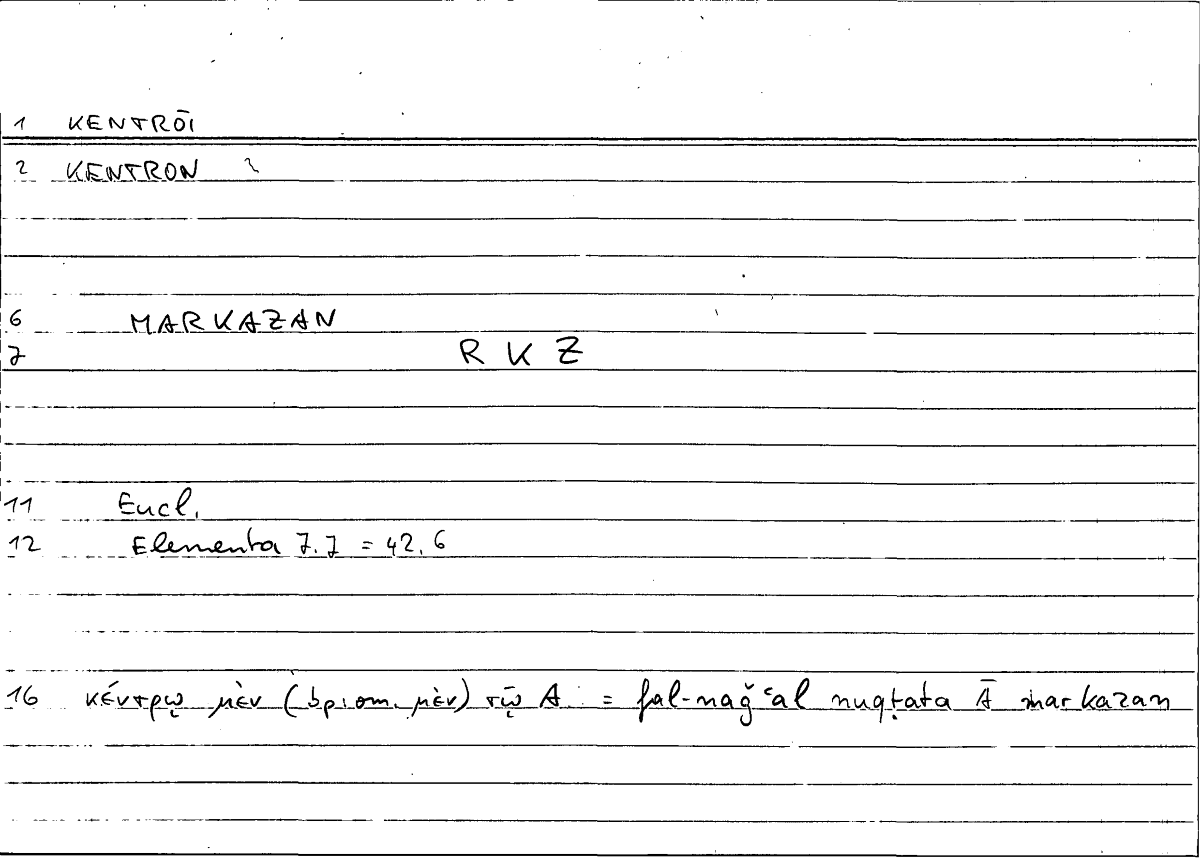 1 KENTRŌI
2 KENTRON 2
6 MARKAZAN
7 R K Z
11 Eucl.
12 Elementa 7.7 = 42.6
16 κέντρῳ μὲν (b p: om. μὲν) τῷ A = fal-naǧʿal nuqṭata Ā markazan